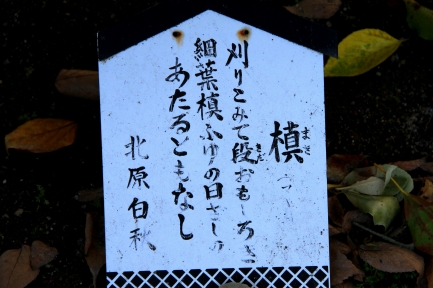 槙
まき
刈りこみて段おもしろき
きだ
細葉槙ふゆの日ざしの
あたるともなし
北原白秋